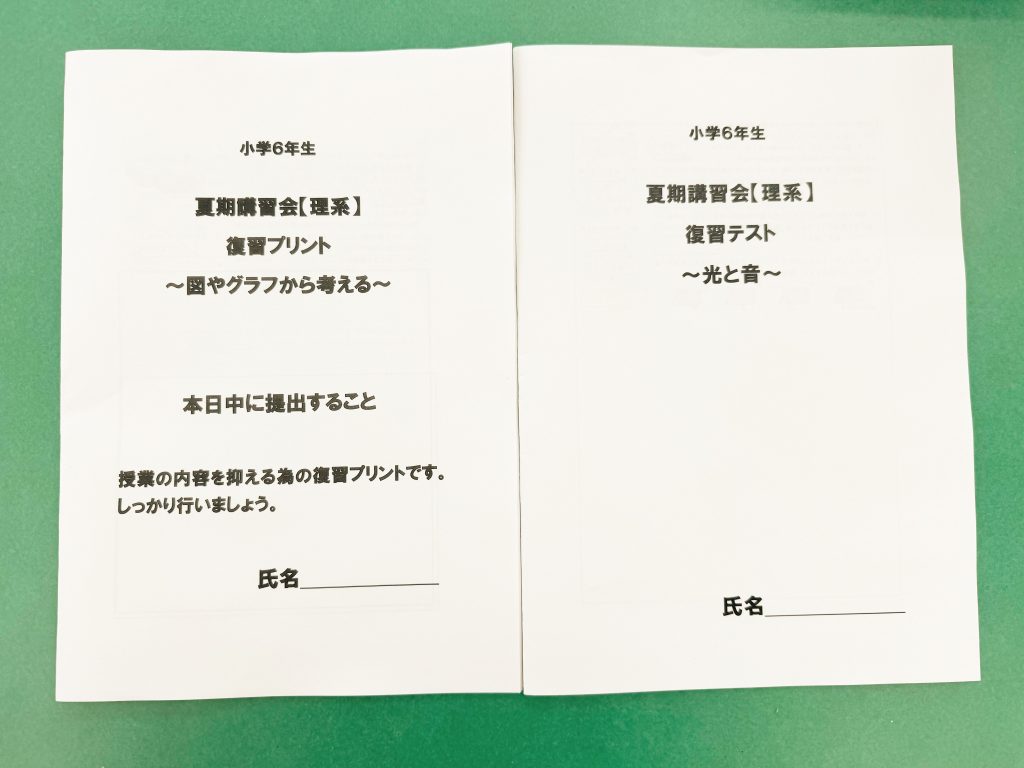 小学6年生
夏期講習会【理系】
復習プリント
～図やグラフから考える～
本日中に提出すること
授業の内容を抑える為の復習プリントです。
しっかり行いましょう。
氏名
小学6年生
夏期講習会【理系】
復習テスト
～光と音～
氏名